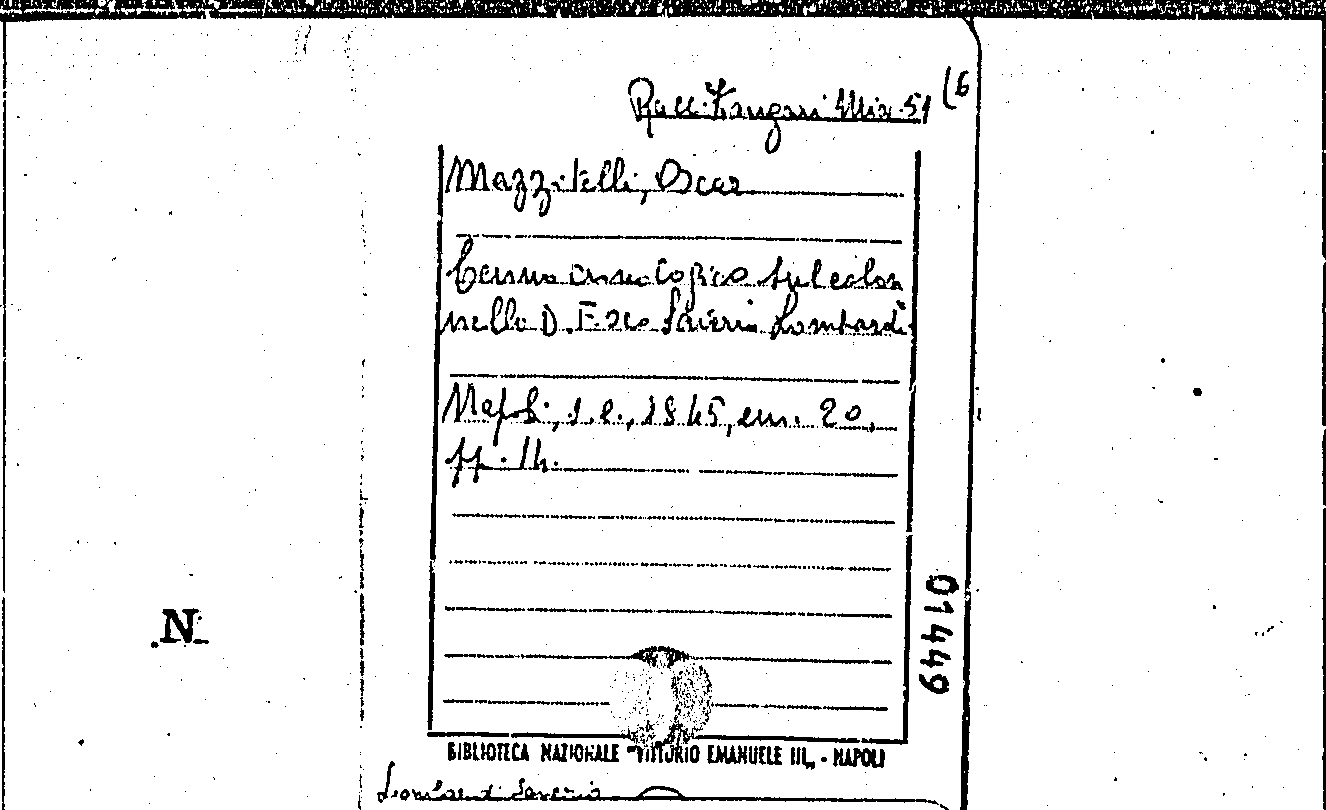 Racc. Zangari Mis. 51 (6
Mazzitelli, Oscar
Cenno necrologico sul colon
nello D. F.sco Saverio Lombardi
Napoli, s.e., 1845, cm. 20,
pp. 14.
01449
N
BIBLIOTECA NAZIONALE "VITTORIO EMANUELE III„ - NAPOLI
Lombardi Saverio